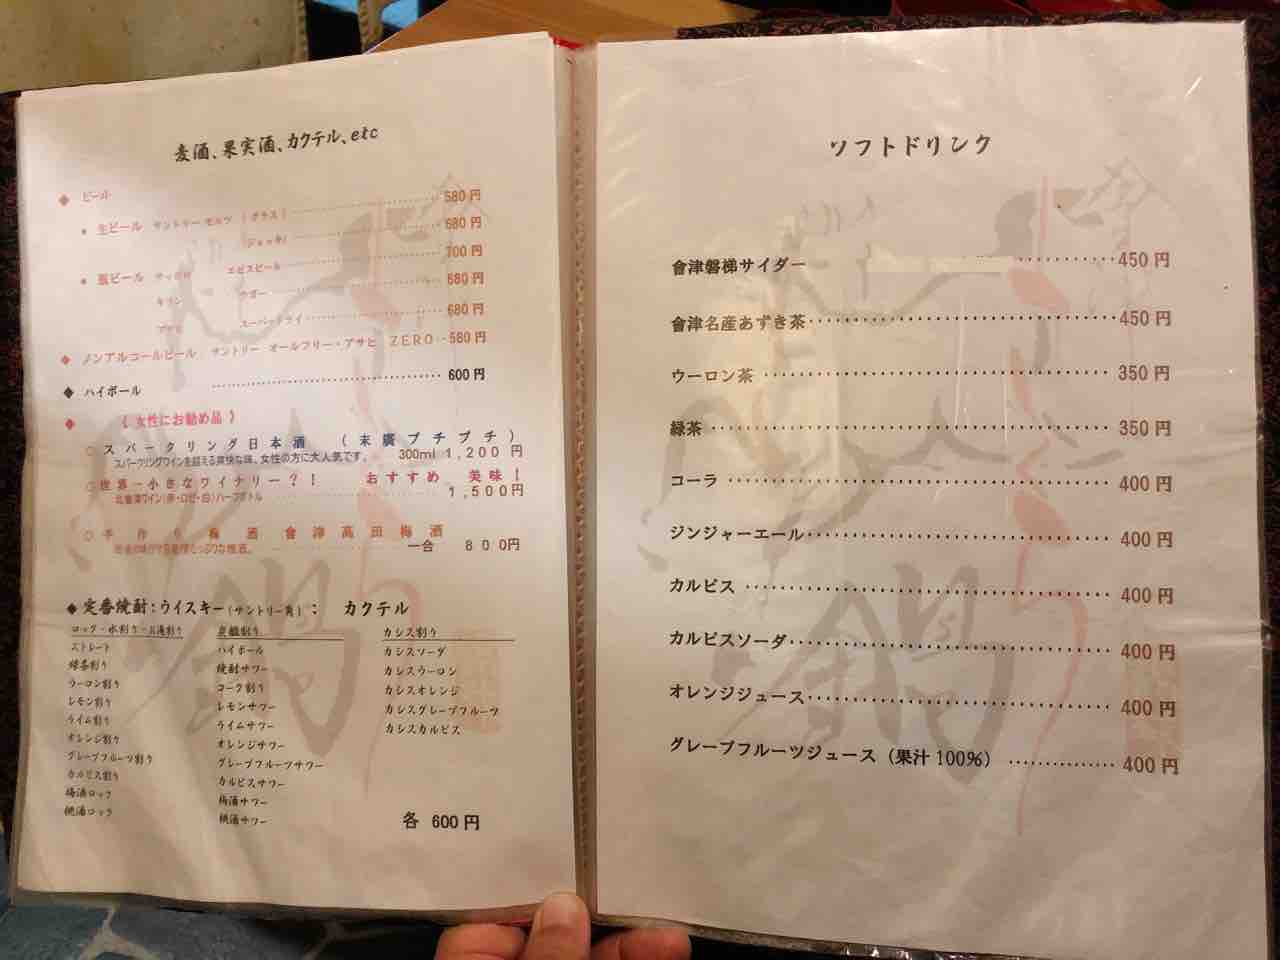 麦酒、果実酒、カクテル、etc
◆ ビール
580円
● 生ビール サントリー モルツ （グラス） 680円
（ジョッキ） 700円
● 瓶ビール サッポロ エビスビール 680円
キリン ラガー 680円
アサヒ スーパードライ
◆ ノンアルコールビール サントリー オールフリー・アサヒ ZERO 580円
◆ ハイボール 600円
◆ 《女性にお勧め品》
○ スパークリング日本酒 （末廣プチプチ）
スパークリングワインを超える爽快な味、女性の方に大人気です。 300ml 1,200円
○世界一小さなワイナリー？！ おすすめ 美味！
北會津ワイン(赤・ロゼ・白)ハーフボトル 1,500円
○ 手作り梅酒 會津高田梅酒
一合 800円
◆ 定番焼酎：ウイスキー（サントリー角）： カクテル
ロック・水割り・お湯割り
ストレート
緑茶割り
ウーロン割り
レモン割り
ライム割り
オレンジ割り
グレープフルーツ割り
カルピス割り
梅酒ロック
桃酒ロック
炭酸割り
ハイボール
焼酎サワー
コーク割り
レモンサワー
ライムサワー
オレンジサワー
グレープフルーツサワー
カルピスサワー
梅酒サワー
桃酒サワー
カシス割り
カシスソーダ
カシスウーロン
カシスオレンジ
カシスグレープフルーツ
カシスカルピス
各 600円
ソフトドリンク
會津磐梯サイダー 450円
會津名産あずき茶 450円
ウーロン茶 350円
緑茶 350円
コーラ 400円
ジンジャーエール 400円
カルピス 400円
カルピスソーダ 400円
オレンジジュース 400円
グレープフルーツジュース（果汁100%） 400円